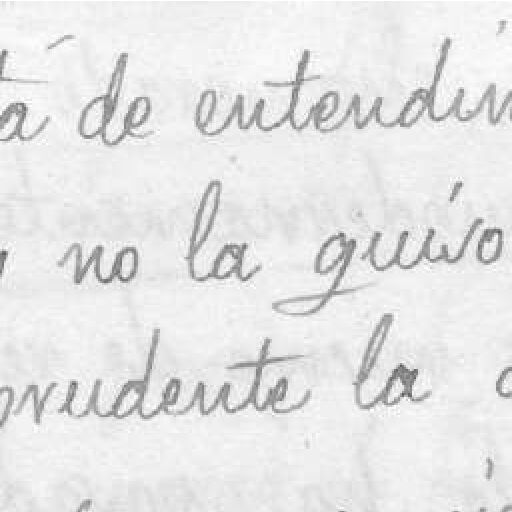 tá de entendim
no la guiso
prudente la